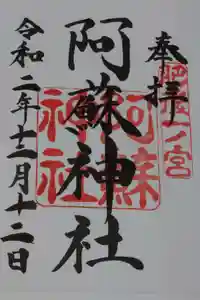 奉拝
肥後一ノ宮
阿蘇神社
阿蘇神社
令和二年十二月十二日